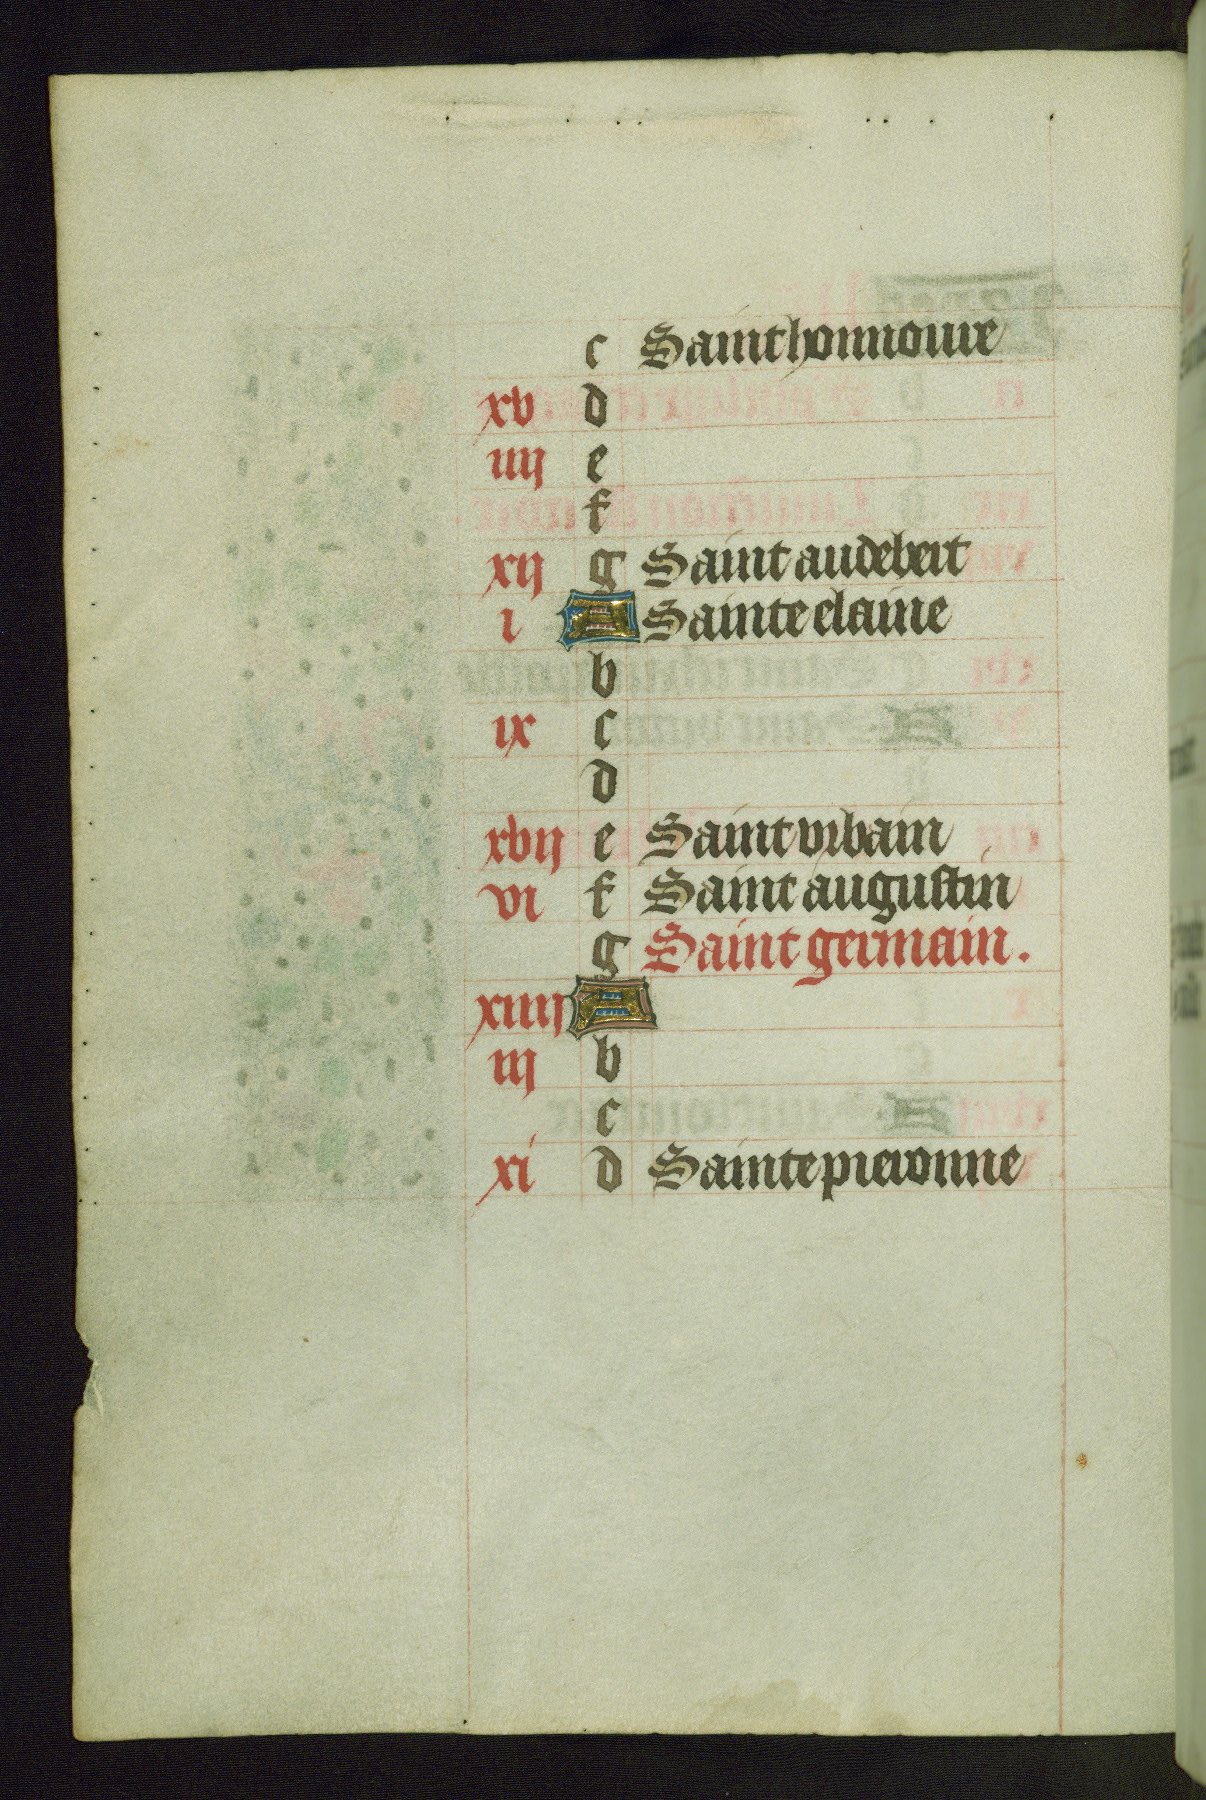 c Saint honnoure
xv d
iiij e
f
xij g Saint audebert
i A Sainte elaine
b
ix c
d
xvij e Saint urbain
vi f Saint augustin
g Saint germain.
xiiij A
iij b
c
xi d Sainte pieronne